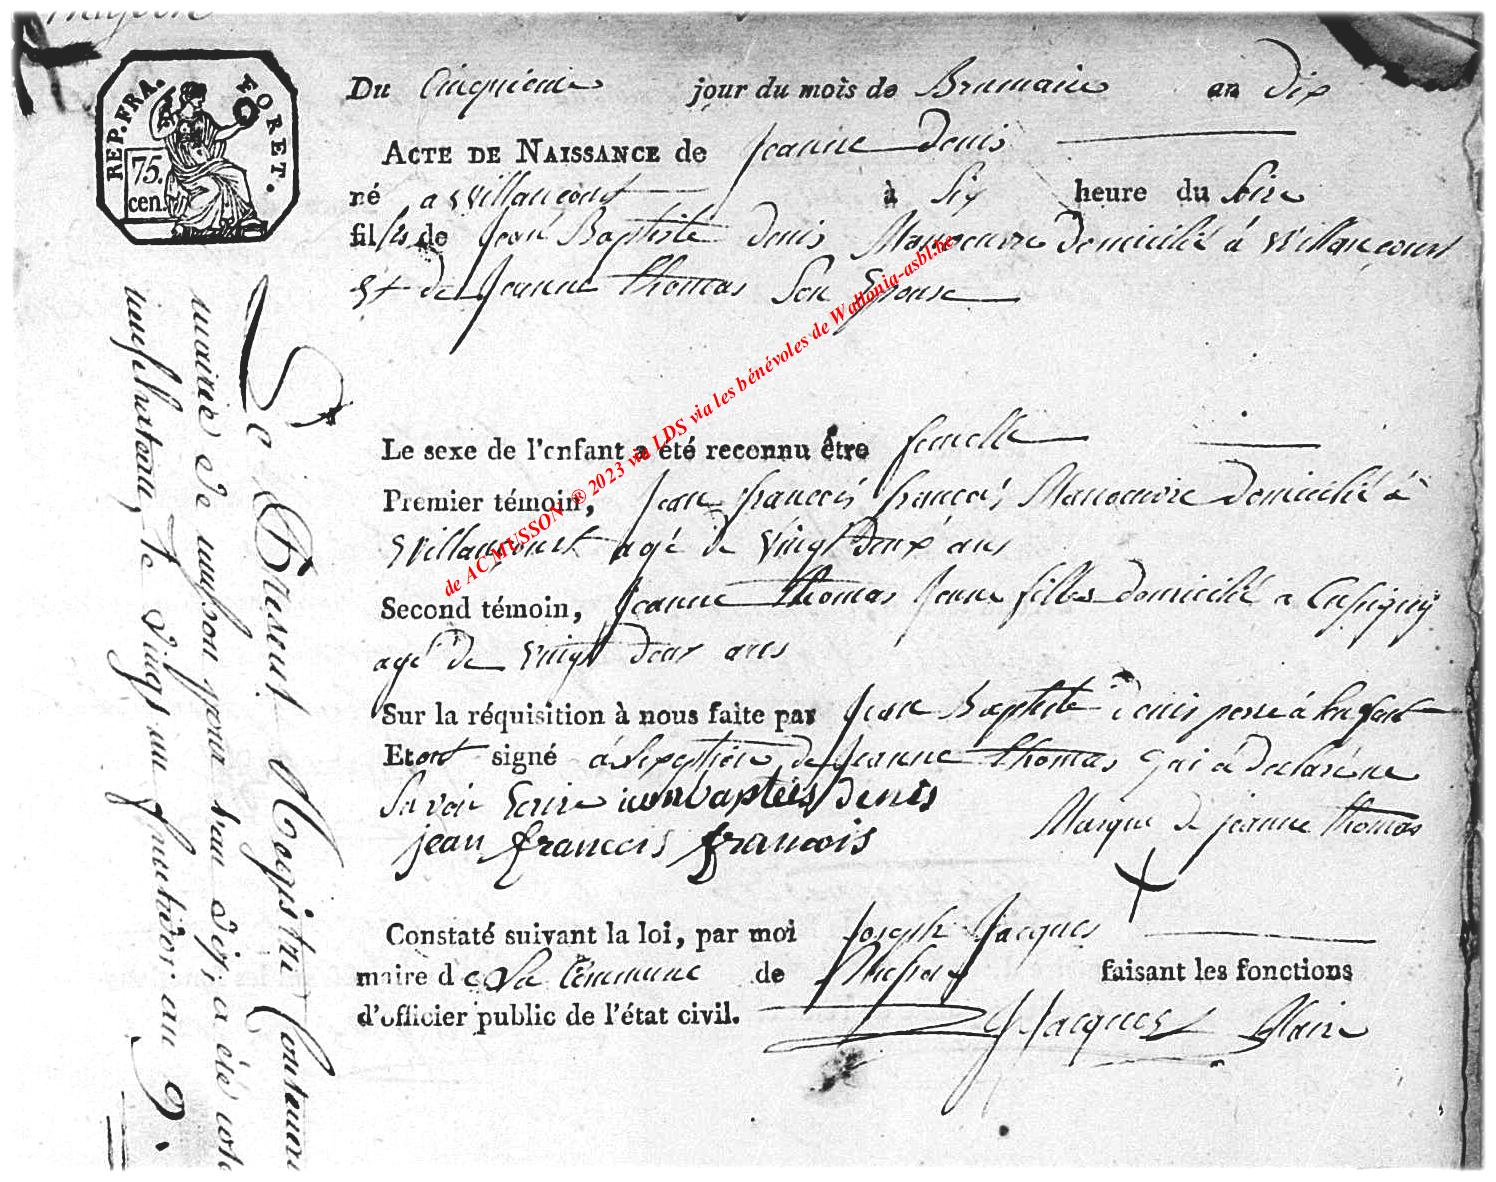 REP. FRA.
FORET.
75.
cen.
Du Cinquieme jour du mois de Brumaire an dix
ACTE DE NAISSANCE de Jeanne Denis
né a Willancourt à Six heure du Soire
fille de Jean Baptiste Denis Manoeuvre Domicilié á Willancourt
Et de Jeanne thomas Son Epouse
Le sexe de l'enfant a été reconnu être femelle
Premier témoin, Jean françois françois Manoeuvre Domicilié á
Willancourt agé de Vingt Deux ans
Second témoin, Jeanne thomas Jeune fille domicilié a Cussigny
agé de Vingt deux ans
Sur la réquisition à nous faite par Jean Baptiste Denis perre á Enfant
Et ont signé á Lexeption de Jeanne thomas qui á declaré ne
Savoir Ecrire jeanbaptéis denis
jean francois francois Marque de jeanne thomas
Constaté suivant la loi, par moi Joseph Jacques
maire de La Commune de Musson faisant les fonctions
d'officier public de l'état civil. J Jacques Maire
Le Present Registre Contenant
mairie de musson pour l'an dix, a été coté
neufchateau, le vingt un fructidor an 9.
de AC MUSSON ® 2023 via LDS via les bénévoles de Wallonia-asbl.be